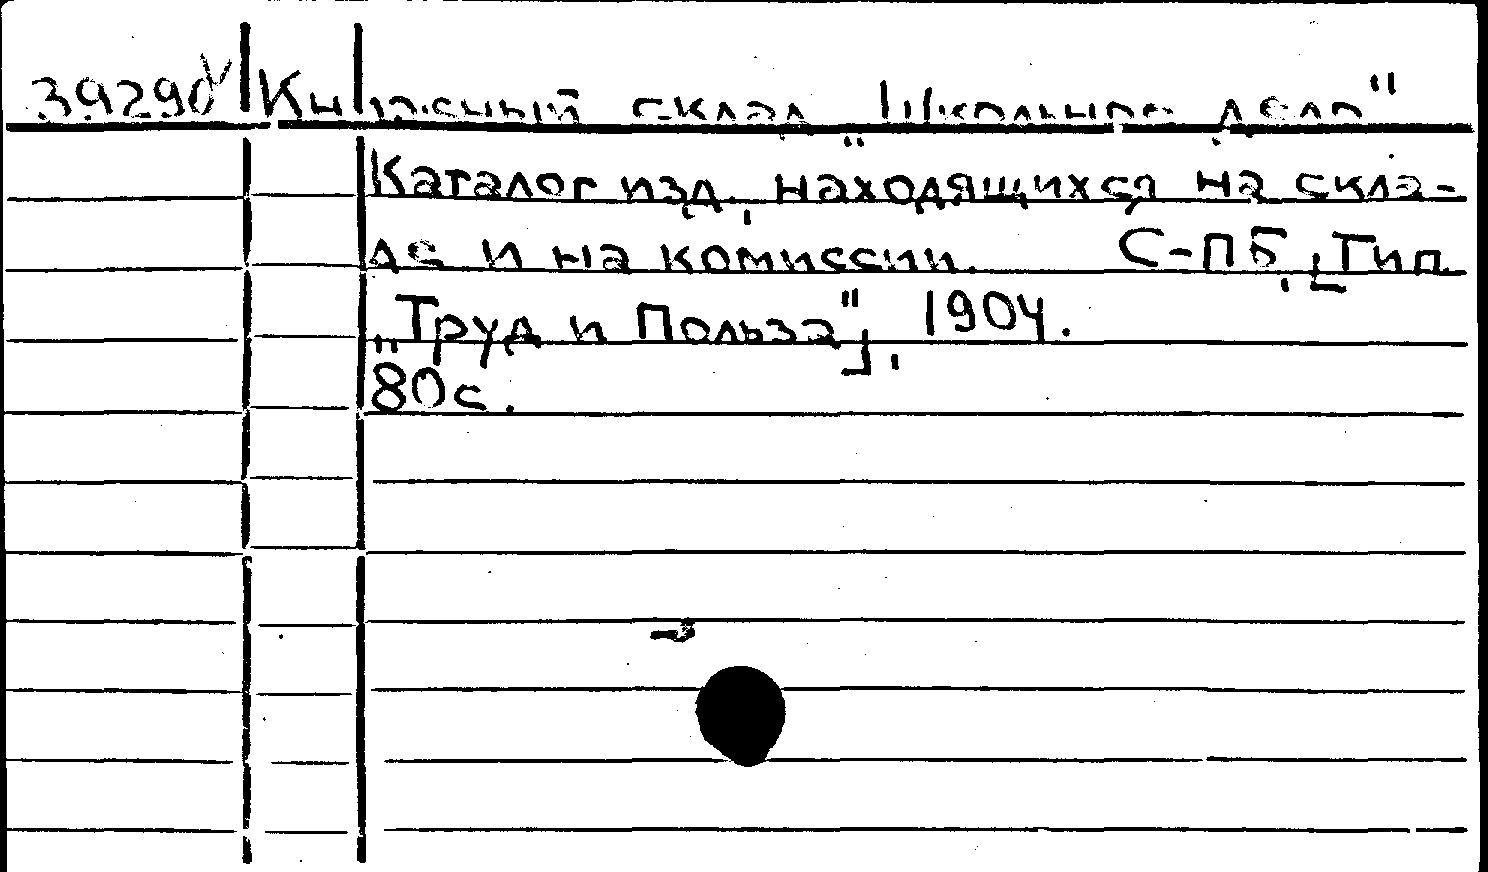 39290 V Книжный склад „Школьное дело"
Каталог изд., находящихся на скла-
де и на комиссии. С-ПБ, [Тип.
„Труд и Польза"], 1904.
80с.